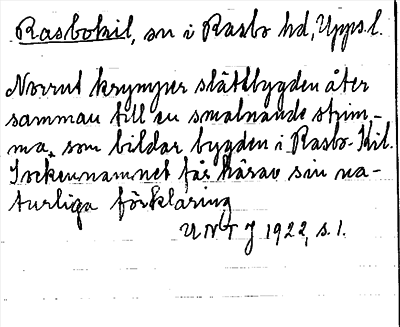 Rasbokil, sn i Rasbo hd, Upps. l.
Norrut krymper slättbygden åter
samman till en smalnande strim-
ma, som bildar bygden i Rasbo-Kil.
Sockennamnet får härav sin na-
turliga förklaring
UNTJ 1922, s. 1.